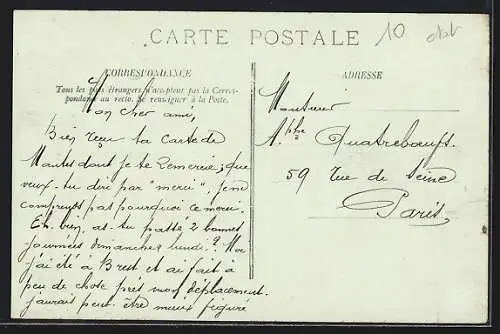 CARTE POSTALE
10
CORRESPONDANCE
Tous les pays étrangers n'acceptent pas la Corres-
pondance au recto. Se renseigner à la Poste.
ADRESSE
Mon cher ami,
Bien reçu ta carte de
Mantes dont je te remercie; que
veux-tu dire par "merci", je ne
comprends pas pourquoi ce merci.
Eh bien, as-tu passé 2 bonnes
journées dimanche & lundi? Moi
j'ai été à Brest et ai fait à
peu de chose près mon déplacement.
j'aurais peut-être mieux figuré
Monsieur
A. Quatreboeufs.
59 Rue de Seine
Paris.